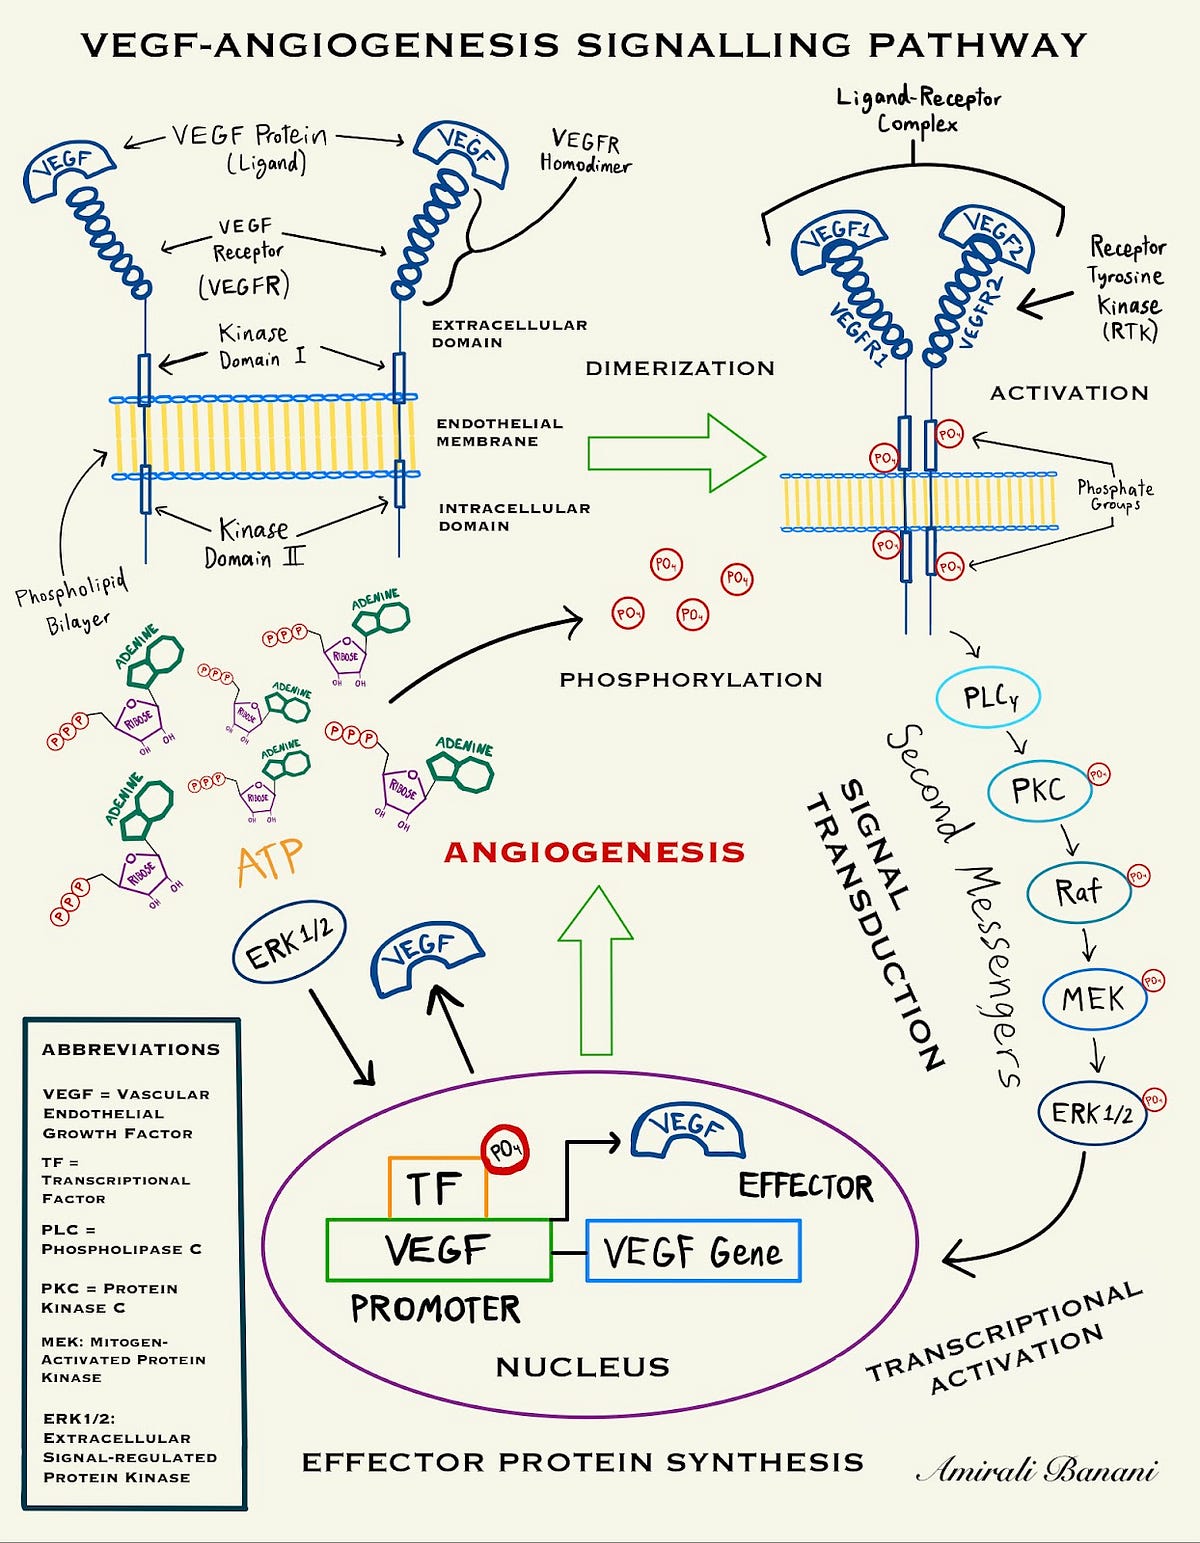 VEGF-ANGIOGENESIS SIGNALLING PATHWAY
VEGF
VEGF Protein
(Ligand)
VEGF
VEGFR
Homodimer
VEGF
Receptor
(VEGFR)
Kinase
Domain I
EXTRACELLULAR
DOMAIN
ENDOTHELIAL
MEMBRANE
INTRACELLULAR
DOMAIN
Kinase
Domain II
Phospholipid
Bilayer
DIMERIZATION
Ligand-Receptor
Complex
VEGF1
VEGF2
VEGFR1
VEGFR2
Receptor
Tyrosine
Kinase
(RTK)
ACTIVATION
PO4
PO4
PO4
PO4
Phosphate
Groups
PO4
PO4
PO4
PO4
PHOSPHORYLATION
ADENINE
PPP
RIBOSE
OH OH
ADENINE
PPP
RIBOSE
OH OH
ADENINE
PPP
RIBOSE
OH OH
ADENINE
PPP
RIBOSE
OH OH
ADENINE
PPP
RIBOSE
OH OH
ADENINE
PPP
RIBOSE
OH OH
ATP
PLCγ
PKC
PO4
Raf
PO4
MEK
PO4
ERK 1/2
PO4
Second Messengers
SIGNAL
TRANSDUCTION
ANGIOGENESIS
ERK 1/2
VEGF
TF
PO4
VEGF
PROMOTER
VEGF Gene
VEGF
EFFECTOR
NUCLEUS
TRANSCRIPTIONAL
ACTIVATION
EFFECTOR PROTEIN SYNTHESIS
ABBREVIATIONS
VEGF = VASCULAR
ENDOTHELIAL
GROWTH FACTOR
TF =
TRANSCRIPTIONAL
FACTOR
PLC =
PHOSPHOLIPASE C
PKC = PROTEIN
KINASE C
MEK: MITOGEN-
ACTIVATED PROTEIN
KINASE
ERK1/2:
EXTRACELLULAR
SIGNAL-REGULATED
PROTEIN KINASE
Amirali Banani